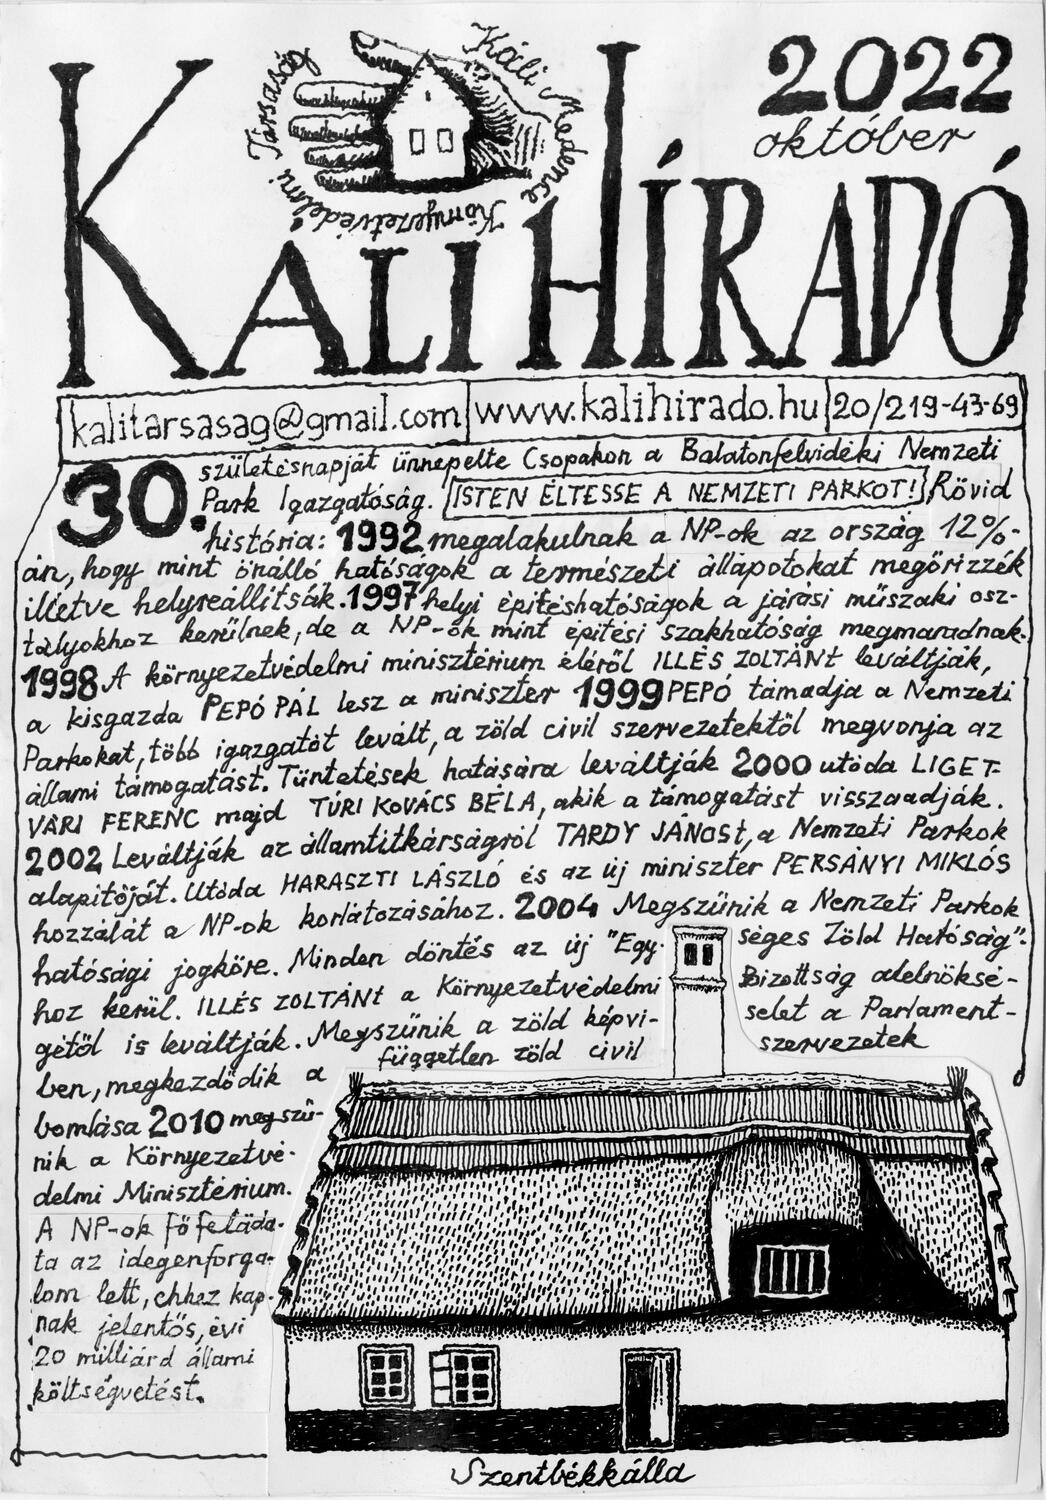 Káli Medence Környezetvédelmi Társaság
2022
október
KALI HÍRADÓ
kalitarsasag@gmail.com www.kalihirado.hu 20/219-43-69
30. születésnapját ünnepelte Csopakon a Balatonfelvidéki Nemzeti
Park Igazgatóság. ISTEN ÉLTESSE A NEMZETI PARKOT! Rövid
história: 1992 megalakulnak a NP-ok az ország 12%-
án, hogy mint önálló hatóságok a természeti állapotokat megőrizzék
illetve helyreállítsák. 1997 helyi építéshatóságok a járási műszaki osz-
tályokhoz kerülnek, de a NP-ok mint építési szakhatóság megmaradnak.
1998 A környezetvédelmi minisztérium éléről ILLÉS ZOLTÁNt leváltják,
a kisgazda PEPÓ PÁL lesz a miniszter 1999 PEPÓ támadja a Nemzeti
Parkokat, több igazgatót levált, a zöld civil szervezetektől megvonja az
állami támogatást. Tüntetések hatására leváltják 2000 utóda LIGET-
VÁRI FERENC majd TÚRI KOVÁCS BÉLA, akik a támogatást visszaadják.
2002 Leváltják az államtitkárságról TARDY JÁNOSt, a Nemzeti Parkok
alapítóját. Utóda HARASZTI LÁSZLÓ és az új miniszter PERSÁNYI MIKLÓS
hozzálát a NP-ok korlátozásához. 2004 Megszűnik a Nemzeti Parkok
hatósági jogköre. Minden döntés az új "Egy- séges Zöld Hatóság"-
hoz kerül. ILLÉS ZOLTÁNt a Környezetvédelmi Bizottság alelnöksé-
gétől is leváltják. Megszűnik a zöld képvi- selet a Parlament-
ben, megkezdődik a független zöld civil szervezetek
bomlása 2010 megszű-
nik a Környezetvé-
delmi Minisztérium.
A NP-ok fő felada-
ta az idegenforga-
lom lett, ehhez kap-
nak jelentős, évi
20 milliárd állami
költségvetést.
Szentbékkálla